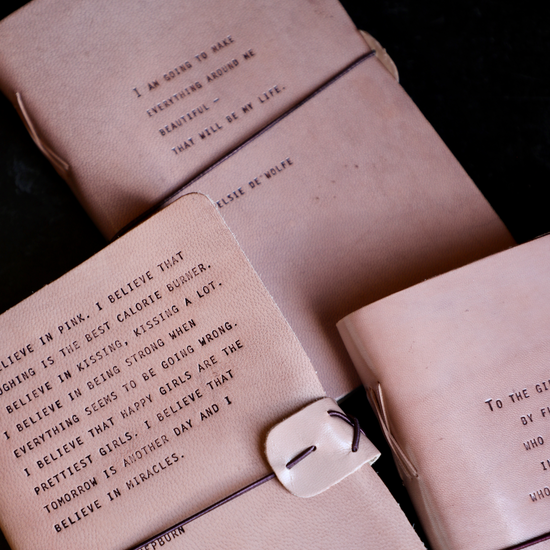 I AM GOING TO MAKE
EVERYTHING AROUND ME
BEAUTIFUL –
THAT WILL BE MY LIFE.
ELSIE DE WOLFE
ELIEVE IN PINK. I BELIEVE THAT
UGHING IS THE BEST CALORIE BURNER.
BELIEVE IN KISSING, KISSING A LOT.
I BELIEVE IN BEING STRONG WHEN
EVERYTHING SEEMS TO BE GOING WRONG.
I BELIEVE THAT HAPPY GIRLS ARE THE
PRETTIEST GIRLS. I BELIEVE THAT
TOMORROW IS ANOTHER DAY AND I
BELIEVE IN MIRACLES.
EPBURN
TO THE GI
BY F
WHO
I
WHO